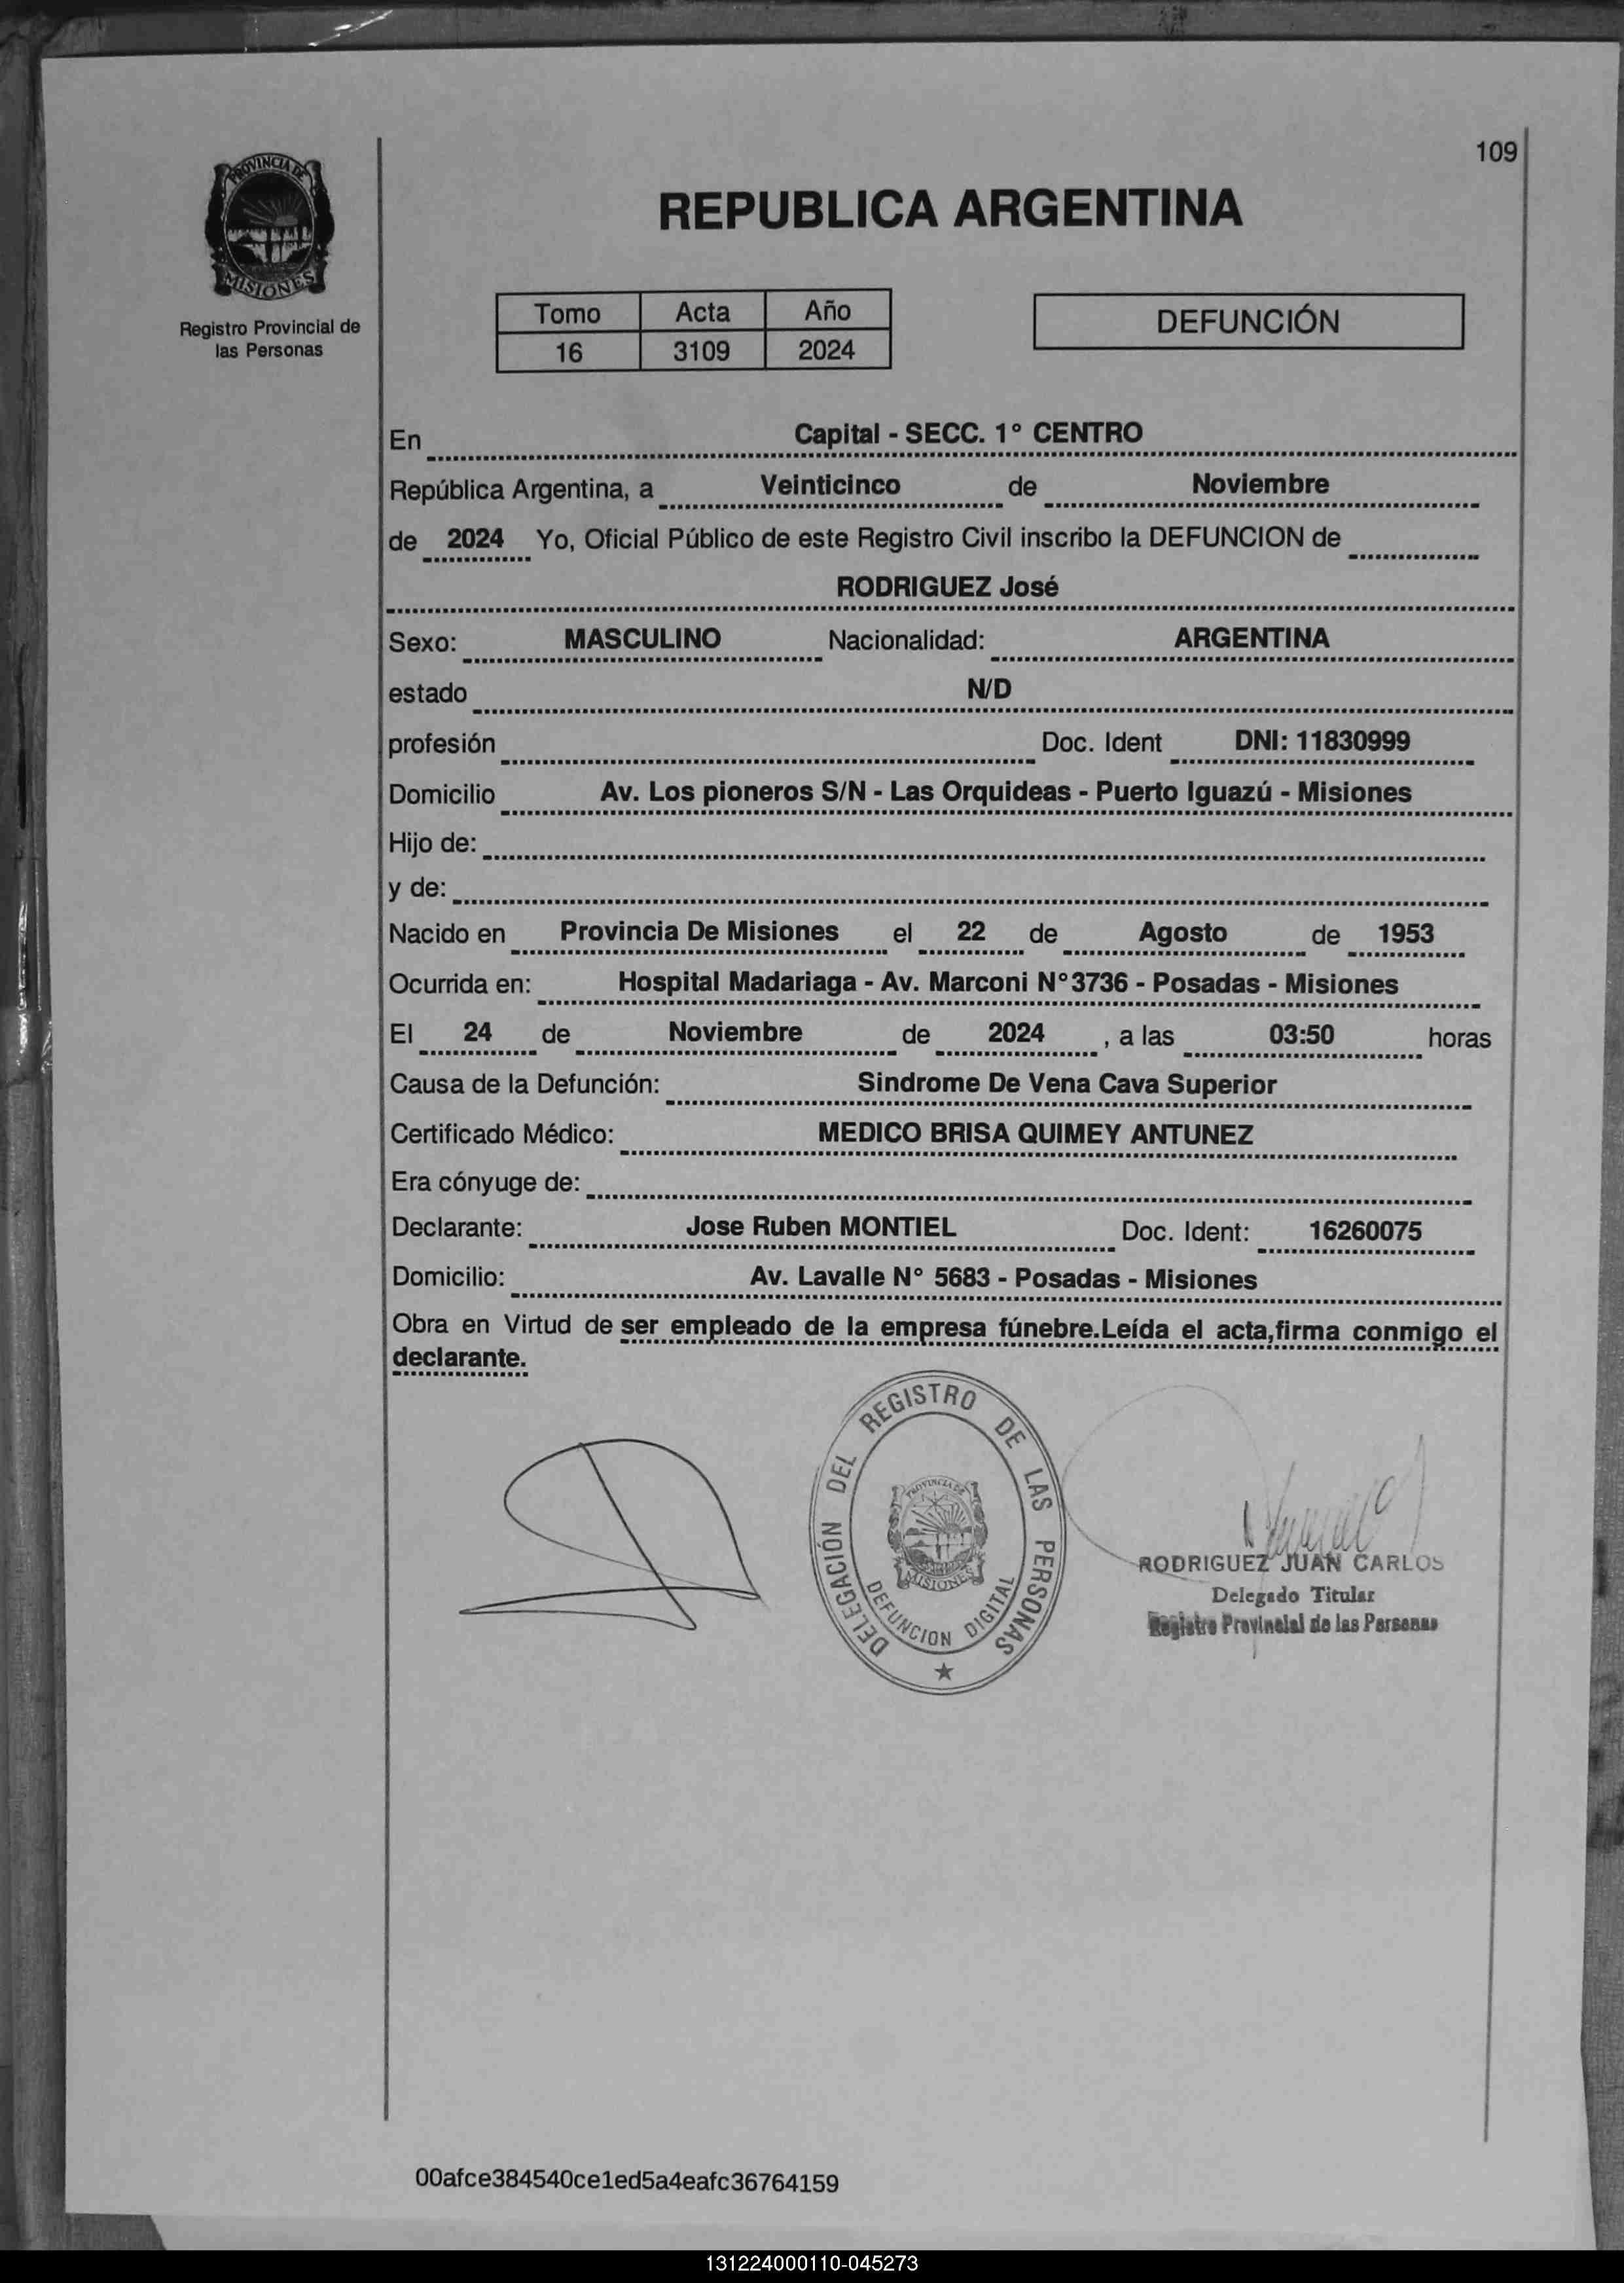 109
PROVINCIA DE
MISIONES
Registro Provincial de
las Personas
REPUBLICA ARGENTINA
Tomo Acta Año
16 3109 2024
DEFUNCIÓN
En Capital - SECC. 1° CENTRO
República Argentina, a Veinticinco de Noviembre
de 2024 Yo, Oficial Público de este Registro Civil inscribo la DEFUNCION de
RODRIGUEZ José
Sexo: MASCULINO Nacionalidad: ARGENTINA
estado N/D
profesión Doc. Ident DNI: 11830999
Domicilio Av. Los pioneros S/N - Las Orquideas - Puerto Iguazú - Misiones
Hijo de:
y de:
Nacido en Provincia De Misiones el 22 de Agosto de 1953
Ocurrida en: Hospital Madariaga - Av. Marconi N°3736 - Posadas - Misiones
El 24 de Noviembre de 2024 , a las 03:50 horas
Causa de la Defunción: Sindrome De Vena Cava Superior
Certificado Médico: MEDICO BRISA QUIMEY ANTUNEZ
Era cónyuge de:
Declarante: Jose Ruben MONTIEL Doc. Ident: 16260075
Domicilio: Av. Lavalle N° 5683 - Posadas - Misiones
Obra en Virtud de ser empleado de la empresa fúnebre.Leída el acta,firma conmigo el
declarante.
DELEGACIÓN DEL REGISTRO DE LAS PERSONAS
PROVINCIA DE
MISIONES
DEFUNCION DIGITAL
RODRIGUEZ JUAN CARLOS
Delegado Titular
Registro Provincial de las Personas
00afce384540ce1ed5a4eafc36764159
131224000110-045273